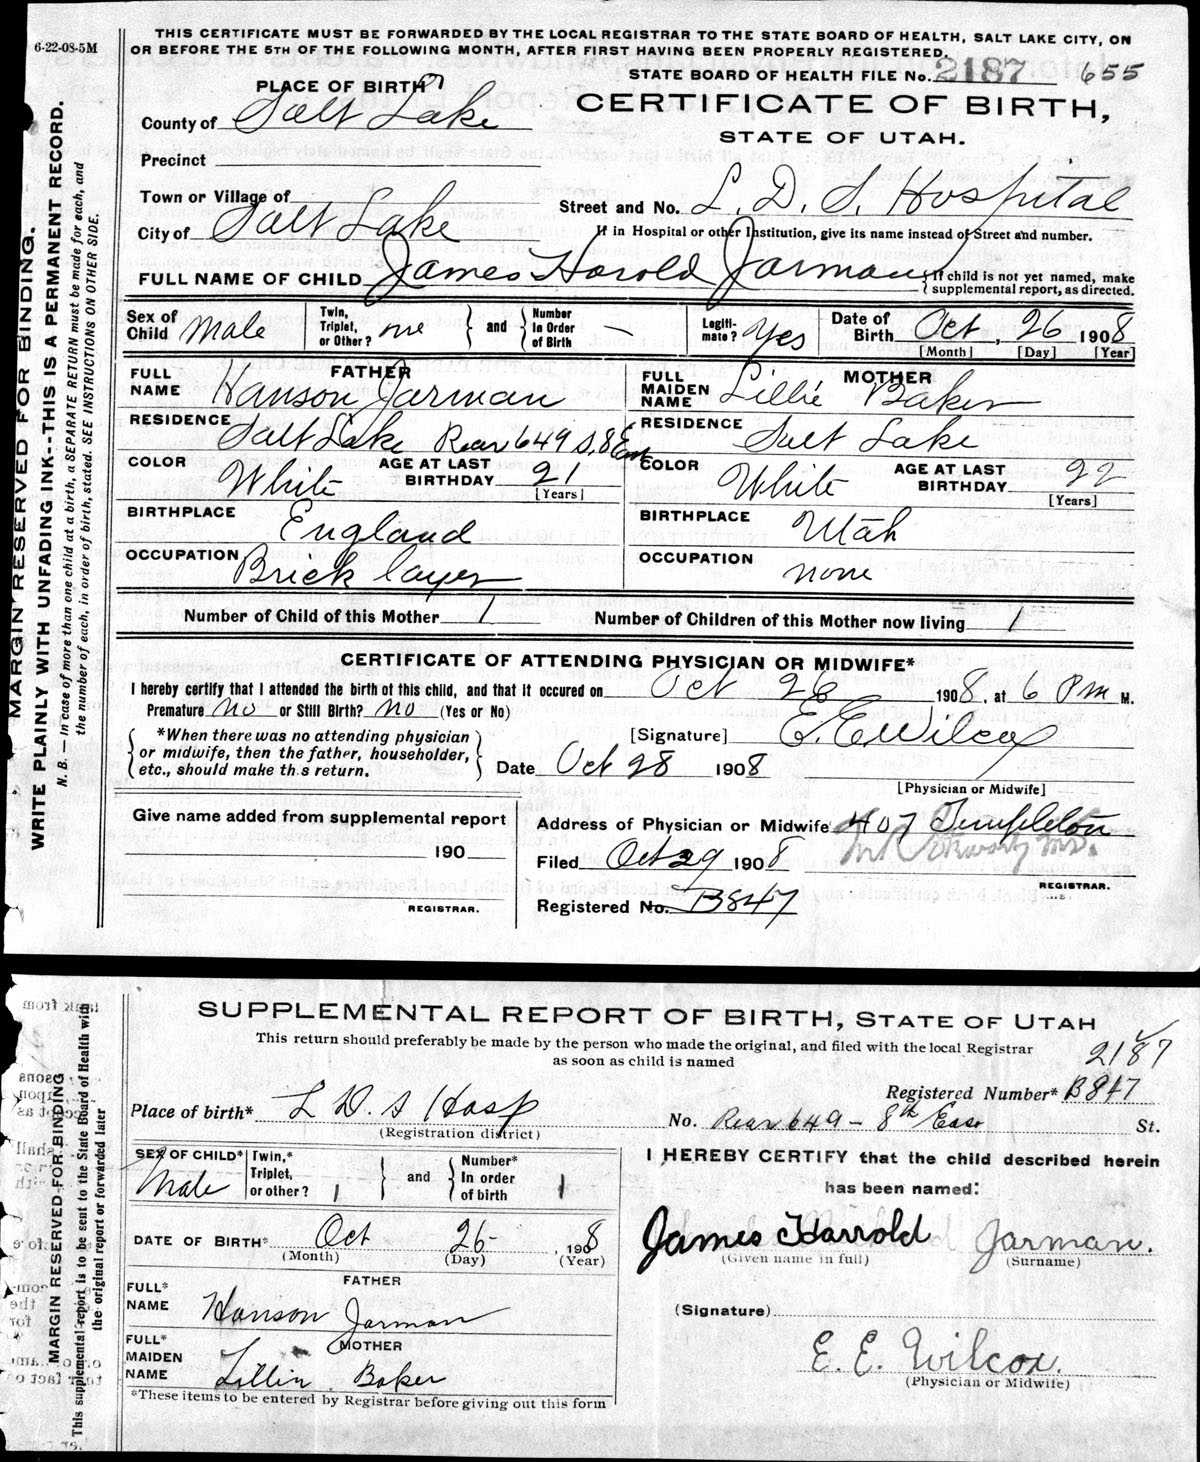 6-22-08-5M
THIS CERTIFICATE MUST BE FORWARDED BY THE LOCAL REGISTRAR TO THE STATE BOARD OF HEALTH, SALT LAKE CITY, ON
OR BEFORE THE 5TH OF THE FOLLOWING MONTH, AFTER FIRST HAVING BEEN PROPERLY REGISTERED.
STATE BOARD OF HEALTH FILE No. 2187 655
PLACE OF BIRTH
CERTIFICATE OF BIRTH,
STATE OF UTAH.
County of Salt Lake
Precinct
Town or Village of
Street and No. L. D. S. Hospital
City of Salt Lake
If in Hospital or other Institution, give its name instead of Street and number.
FULL NAME OF CHILD James Harold Jarman
If child is not yet named, make
supplemental report, as directed.
Sex of Child Male
Twin, Triplet, or Other? one
and
Number In Order of Birth —
Legiti- mate? Yes
Date of Birth Oct, 26 1908
[Month] [Day] [Year]
FATHER
FULL NAME Hanson Jarman
MOTHER
FULL MAIDEN NAME Lillie Baker
RESIDENCE Salt Lake Rear 649 S. 8 East
RESIDENCE Salt Lake
COLOR White AGE AT LAST BIRTHDAY 21
[Years]
COLOR White AGE AT LAST BIRTHDAY 22
[Years]
BIRTHPLACE England
BIRTHPLACE Utah
OCCUPATION Brick layer
OCCUPATION none
Number of Child of this Mother 1
Number of Children of this Mother now living 1
CERTIFICATE OF ATTENDING PHYSICIAN OR MIDWIFE*
I hereby certify that I attended the birth of this child, and that it occured on Oct 26 1908, at 6 Pm M.
Premature no or Still Birth? no (Yes or No)
*When there was no attending physician
or midwife, then the father, householder,
etc., should make th.s return.
[Signature] E. E. Wilcox
Date Oct 28 1908
[Physician or Midwife]
Give name added from supplemental report
190
REGISTRAR.
Address of Physician or Midwife 407 Templeton
Filed Oct 29 1908
REGISTRAR.
Registered No. B847
MARGIN RESERVED FOR BINDING.
WRITE PLAINLY WITH UNFADING INK--THIS IS A PERMANENT RECORD.
N. B. — In case of more than one child at a birth, a SEPARATE RETURN must be made for each, and
the number of each, in order of birth, stated. SEE INSTRUCTIONS ON OTHER SIDE.
SUPPLEMENTAL REPORT OF BIRTH, STATE OF UTAH
This return should preferably be made by the person who made the original, and filed with the local Registrar
as soon as child is named
2187
Registered Number* B847
Place of birth* L D. S Hosp
(Registration district)
No. Rear 649 - 8th East St.
SEX OF CHILD* Male
Twin,* Triplet, or other? 1
and
Number* In order of birth 1
I HEREBY CERTIFY that the child described herein
has been named:
DATE OF BIRTH* Oct 26- , 1908
(Month) (Day) (Year)
James Harrold Jarman.
(Given name in full) (Surname)
FATHER
FULL* NAME Hanson Jarman
(Signature)
MOTHER
FULL* MAIDEN NAME Lillin Baker
E. E. Wilcox.
(Physician or Midwife)
*These items to be entered by Registrar before giving out this form
MARGIN RESERVED FOR BINDING
This supplemental report is to be sent to the State Board of Health with
the original report or forwarded later